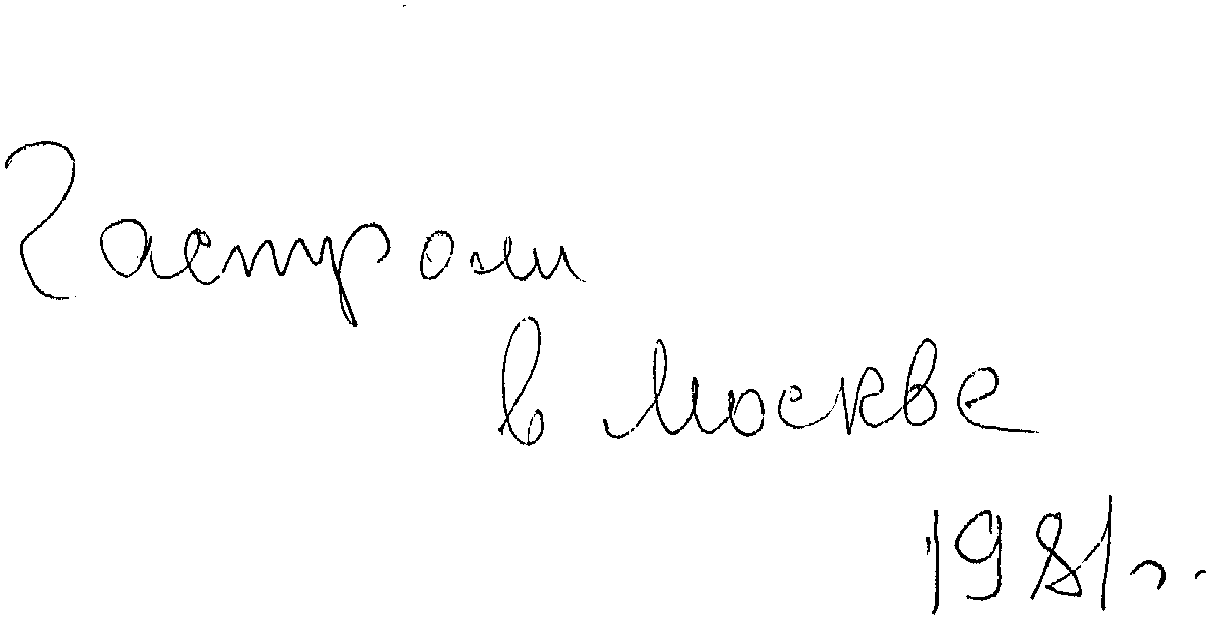 Гастроли
в Москве
1981г.